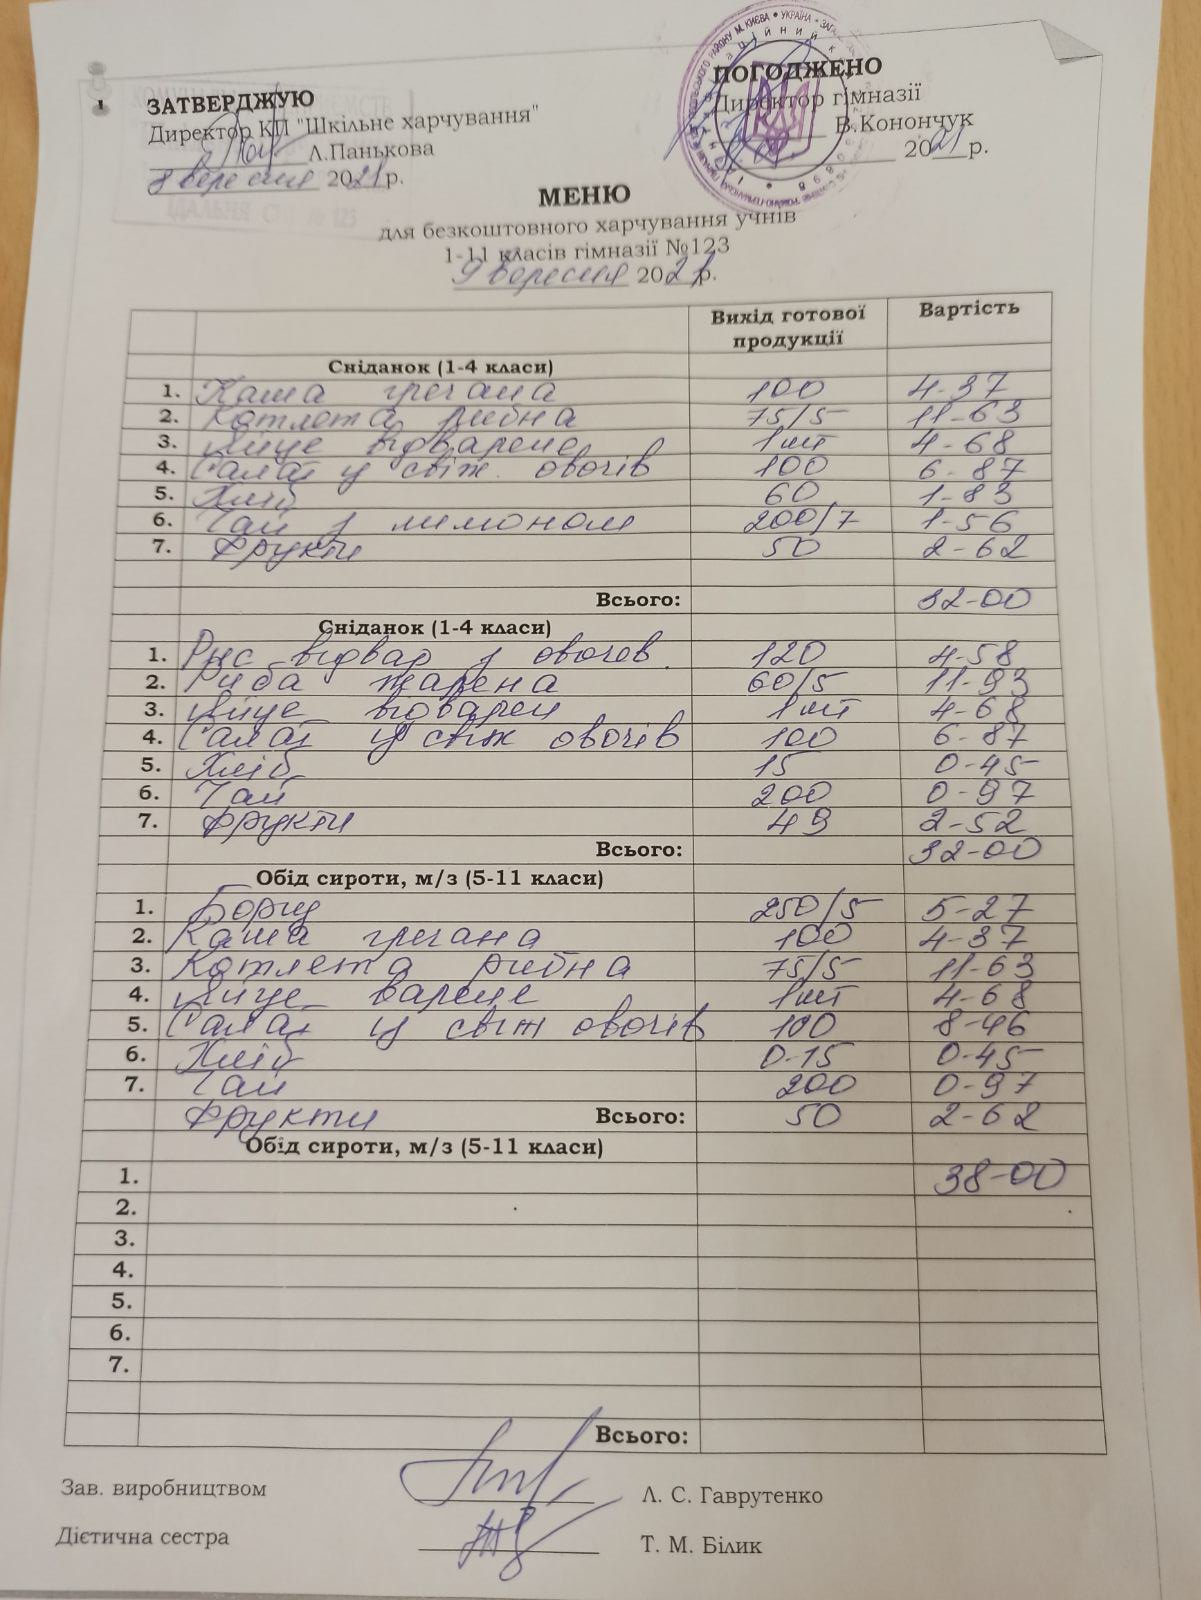 ЗАТВЕРДЖУЮ
Директор КП "Шкільне харчування"
Л.Панькова
8 вересня 2021 р.
ПОГОДЖЕНО
Директор гімназії
В.Конончук
2021 р.
МЕНЮ
для безкоштовного харчування учнів
1-11 класів гімназії №123
9 вересня 2021 р.
Вихід готової продукції Вартість
Сніданок (1-4 класи)
1. Каша гречана 100 4-37
2. Котлета рибна 75/5 11-63
3. Яйце відварене 1 шт 4-68
4. Салат із свіж. овочів 100 6-87
5. Хліб 60 1-83
6. Чай з лимоном 200/7 1-56
7. Фрукти 50 2-62
Всього: 32-00
Сніданок (1-4 класи)
1. Рис відвар з овочев. 120 4-58
2. Риба жарена 60/5 11-93
3. Яйце відварен 1 шт 4-68
4. Салат із свіж овочів 100 6-87
5. Хліб 15 0-45
6. Чай 200 0-97
7. Фрукти 49 2-52
Всього: 32-00
Обід сироти, м/з (5-11 класи)
1. Борщ 250/5 5-27
2. Каша гречана 100 4-37
3. Котлета рибна 75/5 11-63
4. Яйце варене 1 шт 4-68
5. Салат із свіж овочів 100 8-46
6. Хліб 0-15 0-45
7. Чай 200 0-97
Фрукти Всього: 50 2-62
Обід сироти, м/з (5-11 класи)
1. 38-00
2.
3.
4.
5.
6.
7.
Всього:
Зав. виробництвом Л. С. Гаврутенко
Дієтична сестра Т. М. Білик